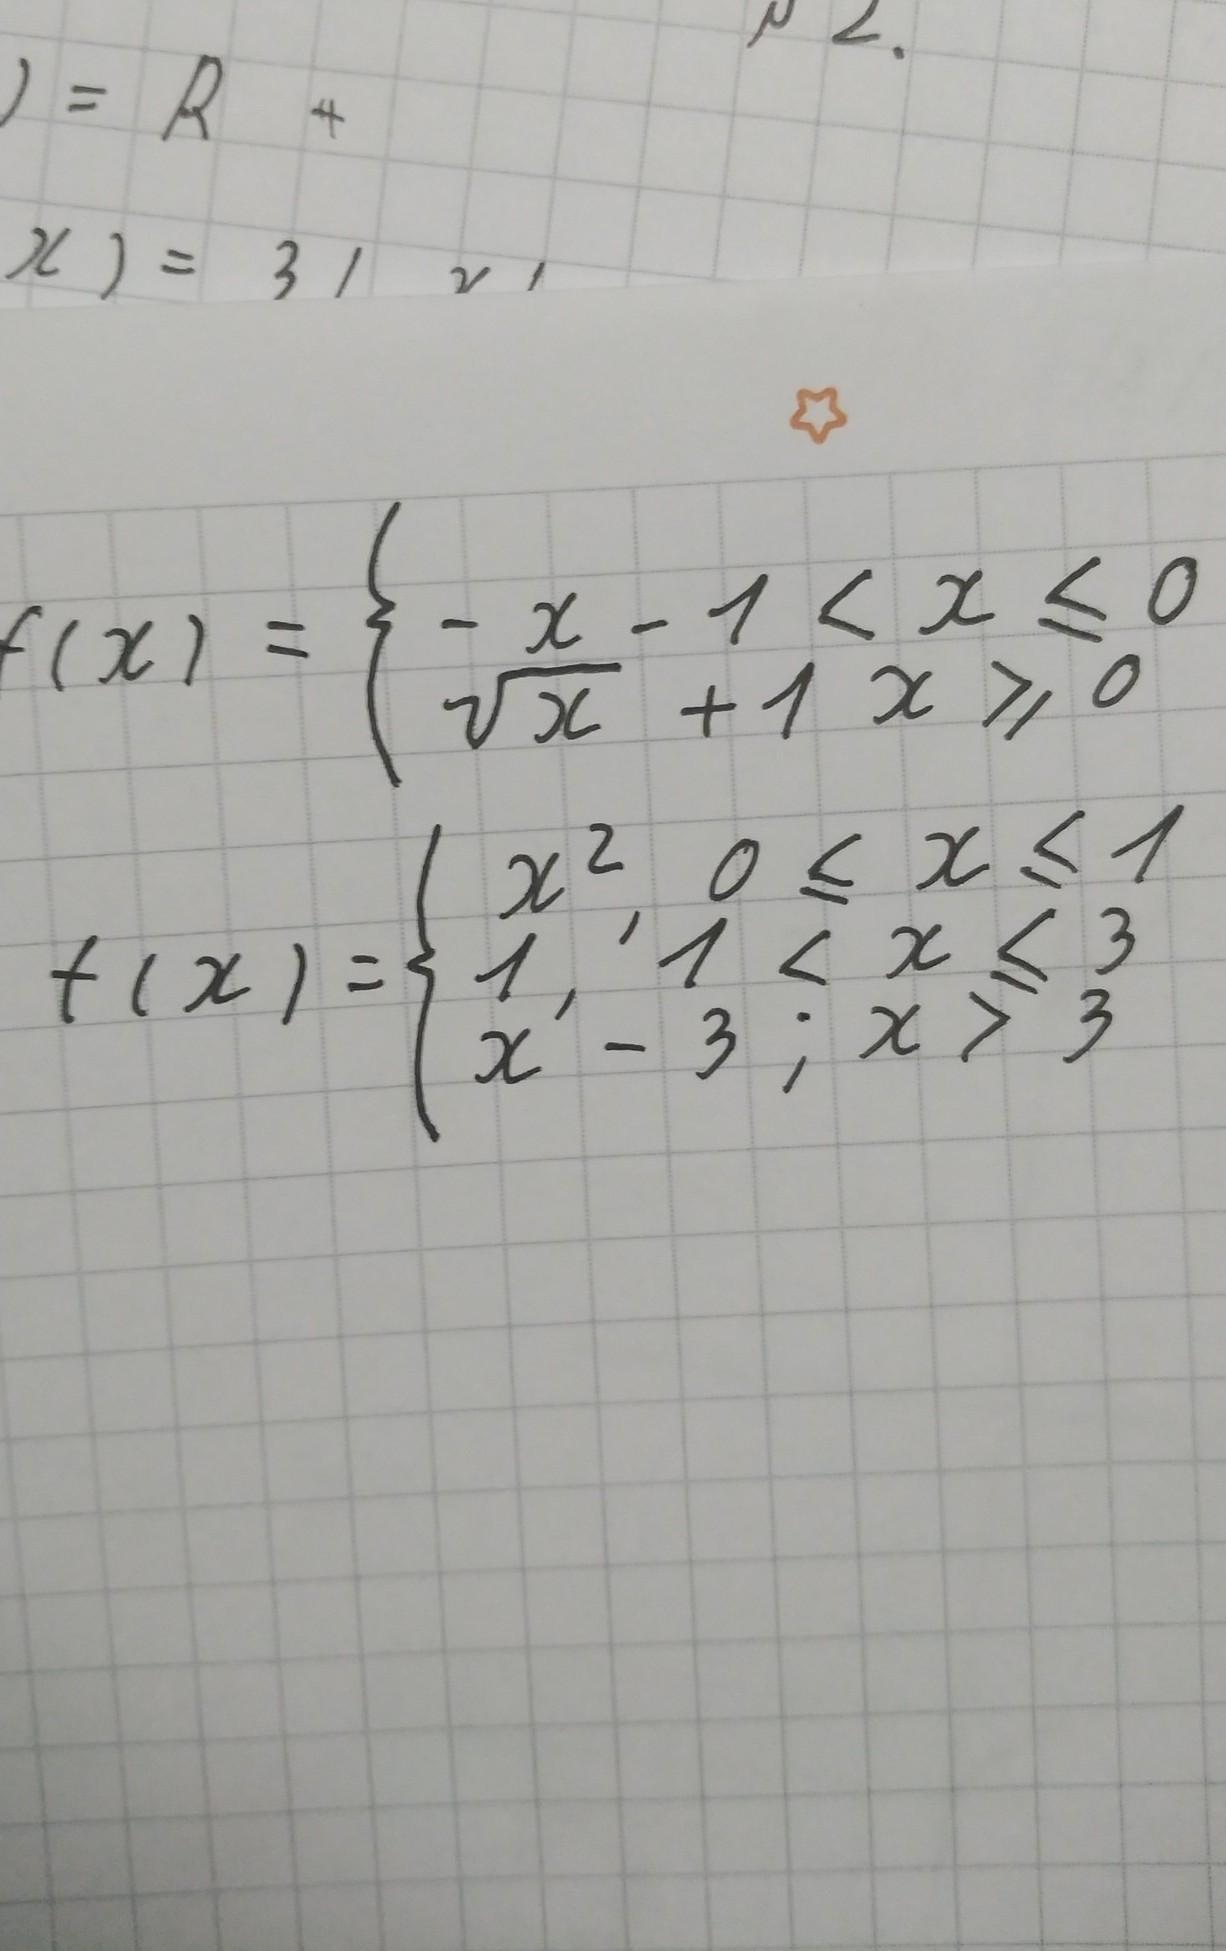 № 2.
) = R +
x) = 3
f(x) = { - x - 1 < x ≤ 0
√x + 1 x ≥ 0
f(x) = { x², 0 ≤ x ≤ 1
1, 1 < x ≤ 3
x - 3 ; x > 3